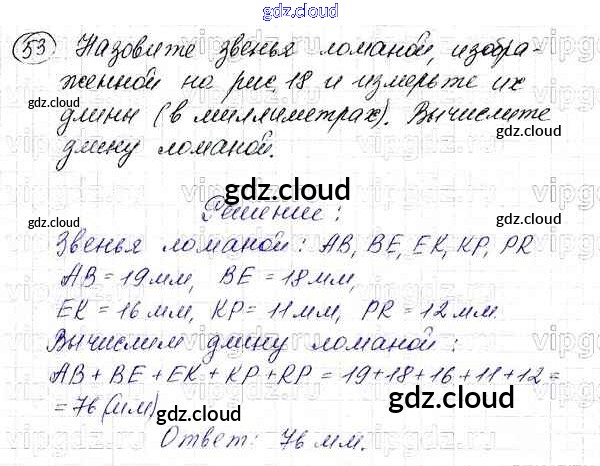 gdz.cloud
53 Назовите звенья ломаной, изобра-
женной на рис. 18 и измерьте их
gdz.cloud
gdz.cloud
длины (в миллиметрах). Вычислите
gdz.cloud
gdz.cloud
длину ломаной.
gdz.cloud
Решение:
gdz.cloud
gdz.cloud
Звенья ломаной: AB, BE, EK, KP, PR
AB = 19 мм, BE = 18 мм,
EK = 16 мм, KP = 11 мм, PR = 12 мм.
Вычислим длину ломаной:
AB + BE + EK + KP + RP = 19+18+16+11+12 =
= 76 (мм)
gdz.cloud
gdz.cloud
Ответ: 76 мм.